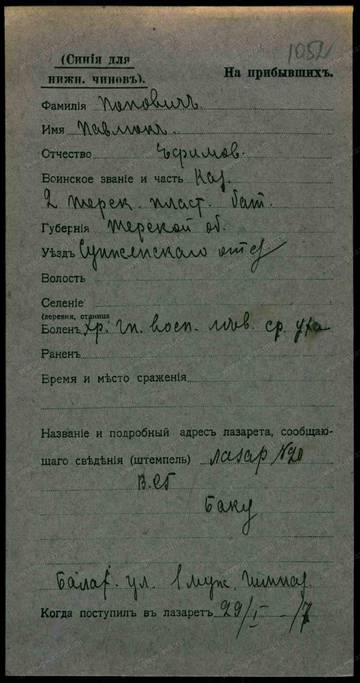 1052
(Синія для
нижн. чиновъ).
На прибывшихъ.
Фамилія Поповичъ
Имя Павлюкъ
Отчество Ефимов.
Воинское званіе и часть Каз.
2 терск. пласт. бат.
Губернія Терской об.
Уѣздъ Сунженскаго отд
Волость
Селеніе
(деревня, станица
Боленъ хр. гн. восп. ср. уха
Раненъ
Время и мѣсто сраженія
Названіе и подробный адресъ лазарета, сообщаю-
щаго свѣдѣнія (штемпель) лазар №20
В.С.Г.
Баку
ул. 1 муж. гимназ.
Когда поступилъ въ лазаретъ 29/I - /7